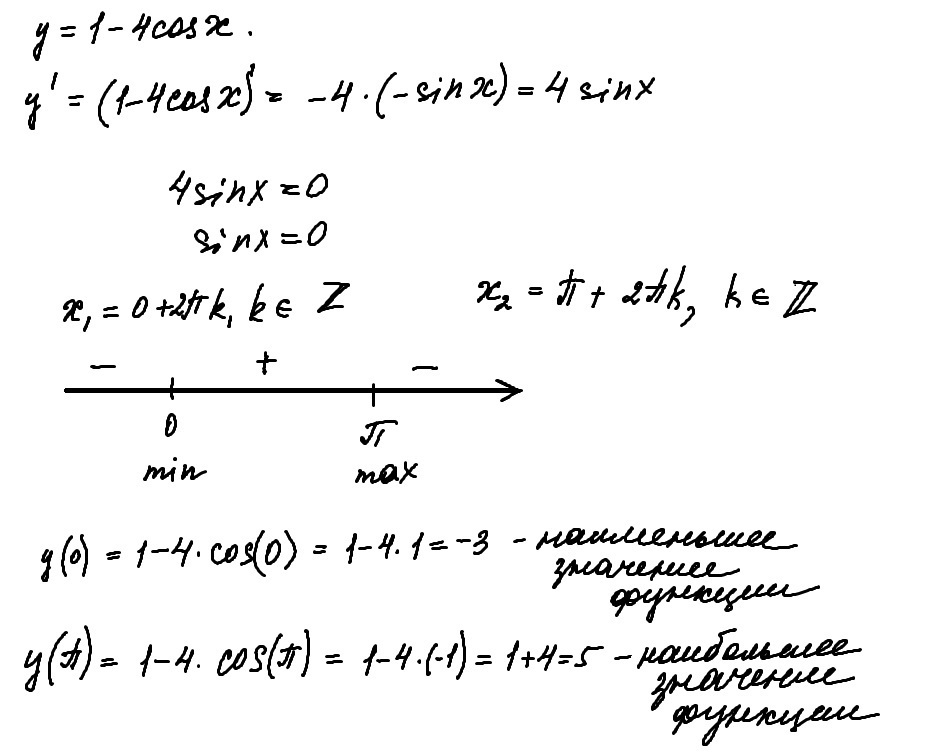 y = 1 - 4cosx.
y' = (1-4cosx)' = -4·(-sinx) = 4 sinx
4sinx=0
sinx=0
x₁ = 0+2πk, k∈ Z x₂ = π + 2πk, k ∈ Z
− + −
0 π
min max
y(0) = 1-4·cos(0) = 1-4·1 = -3 - наименьшее
значение
функции
y(π) = 1-4· cos(π) = 1-4·(-1) = 1+4=5 - наибольшее
значение
функции